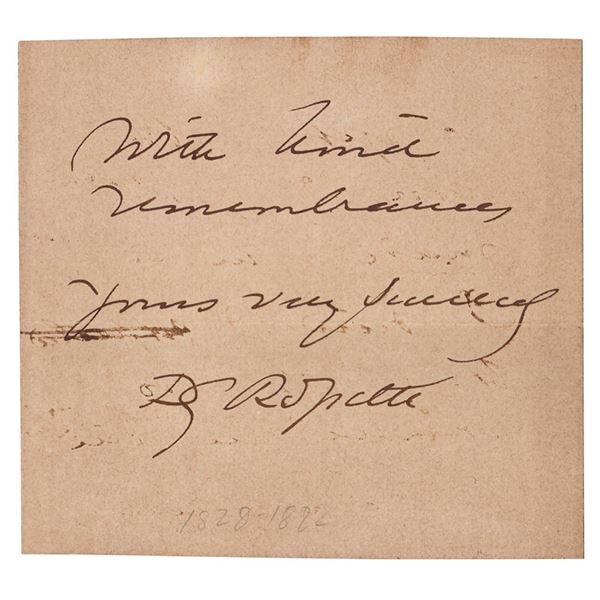 With kind
remembrances
Yours very sincerely
DG Rossetti
1828-1882